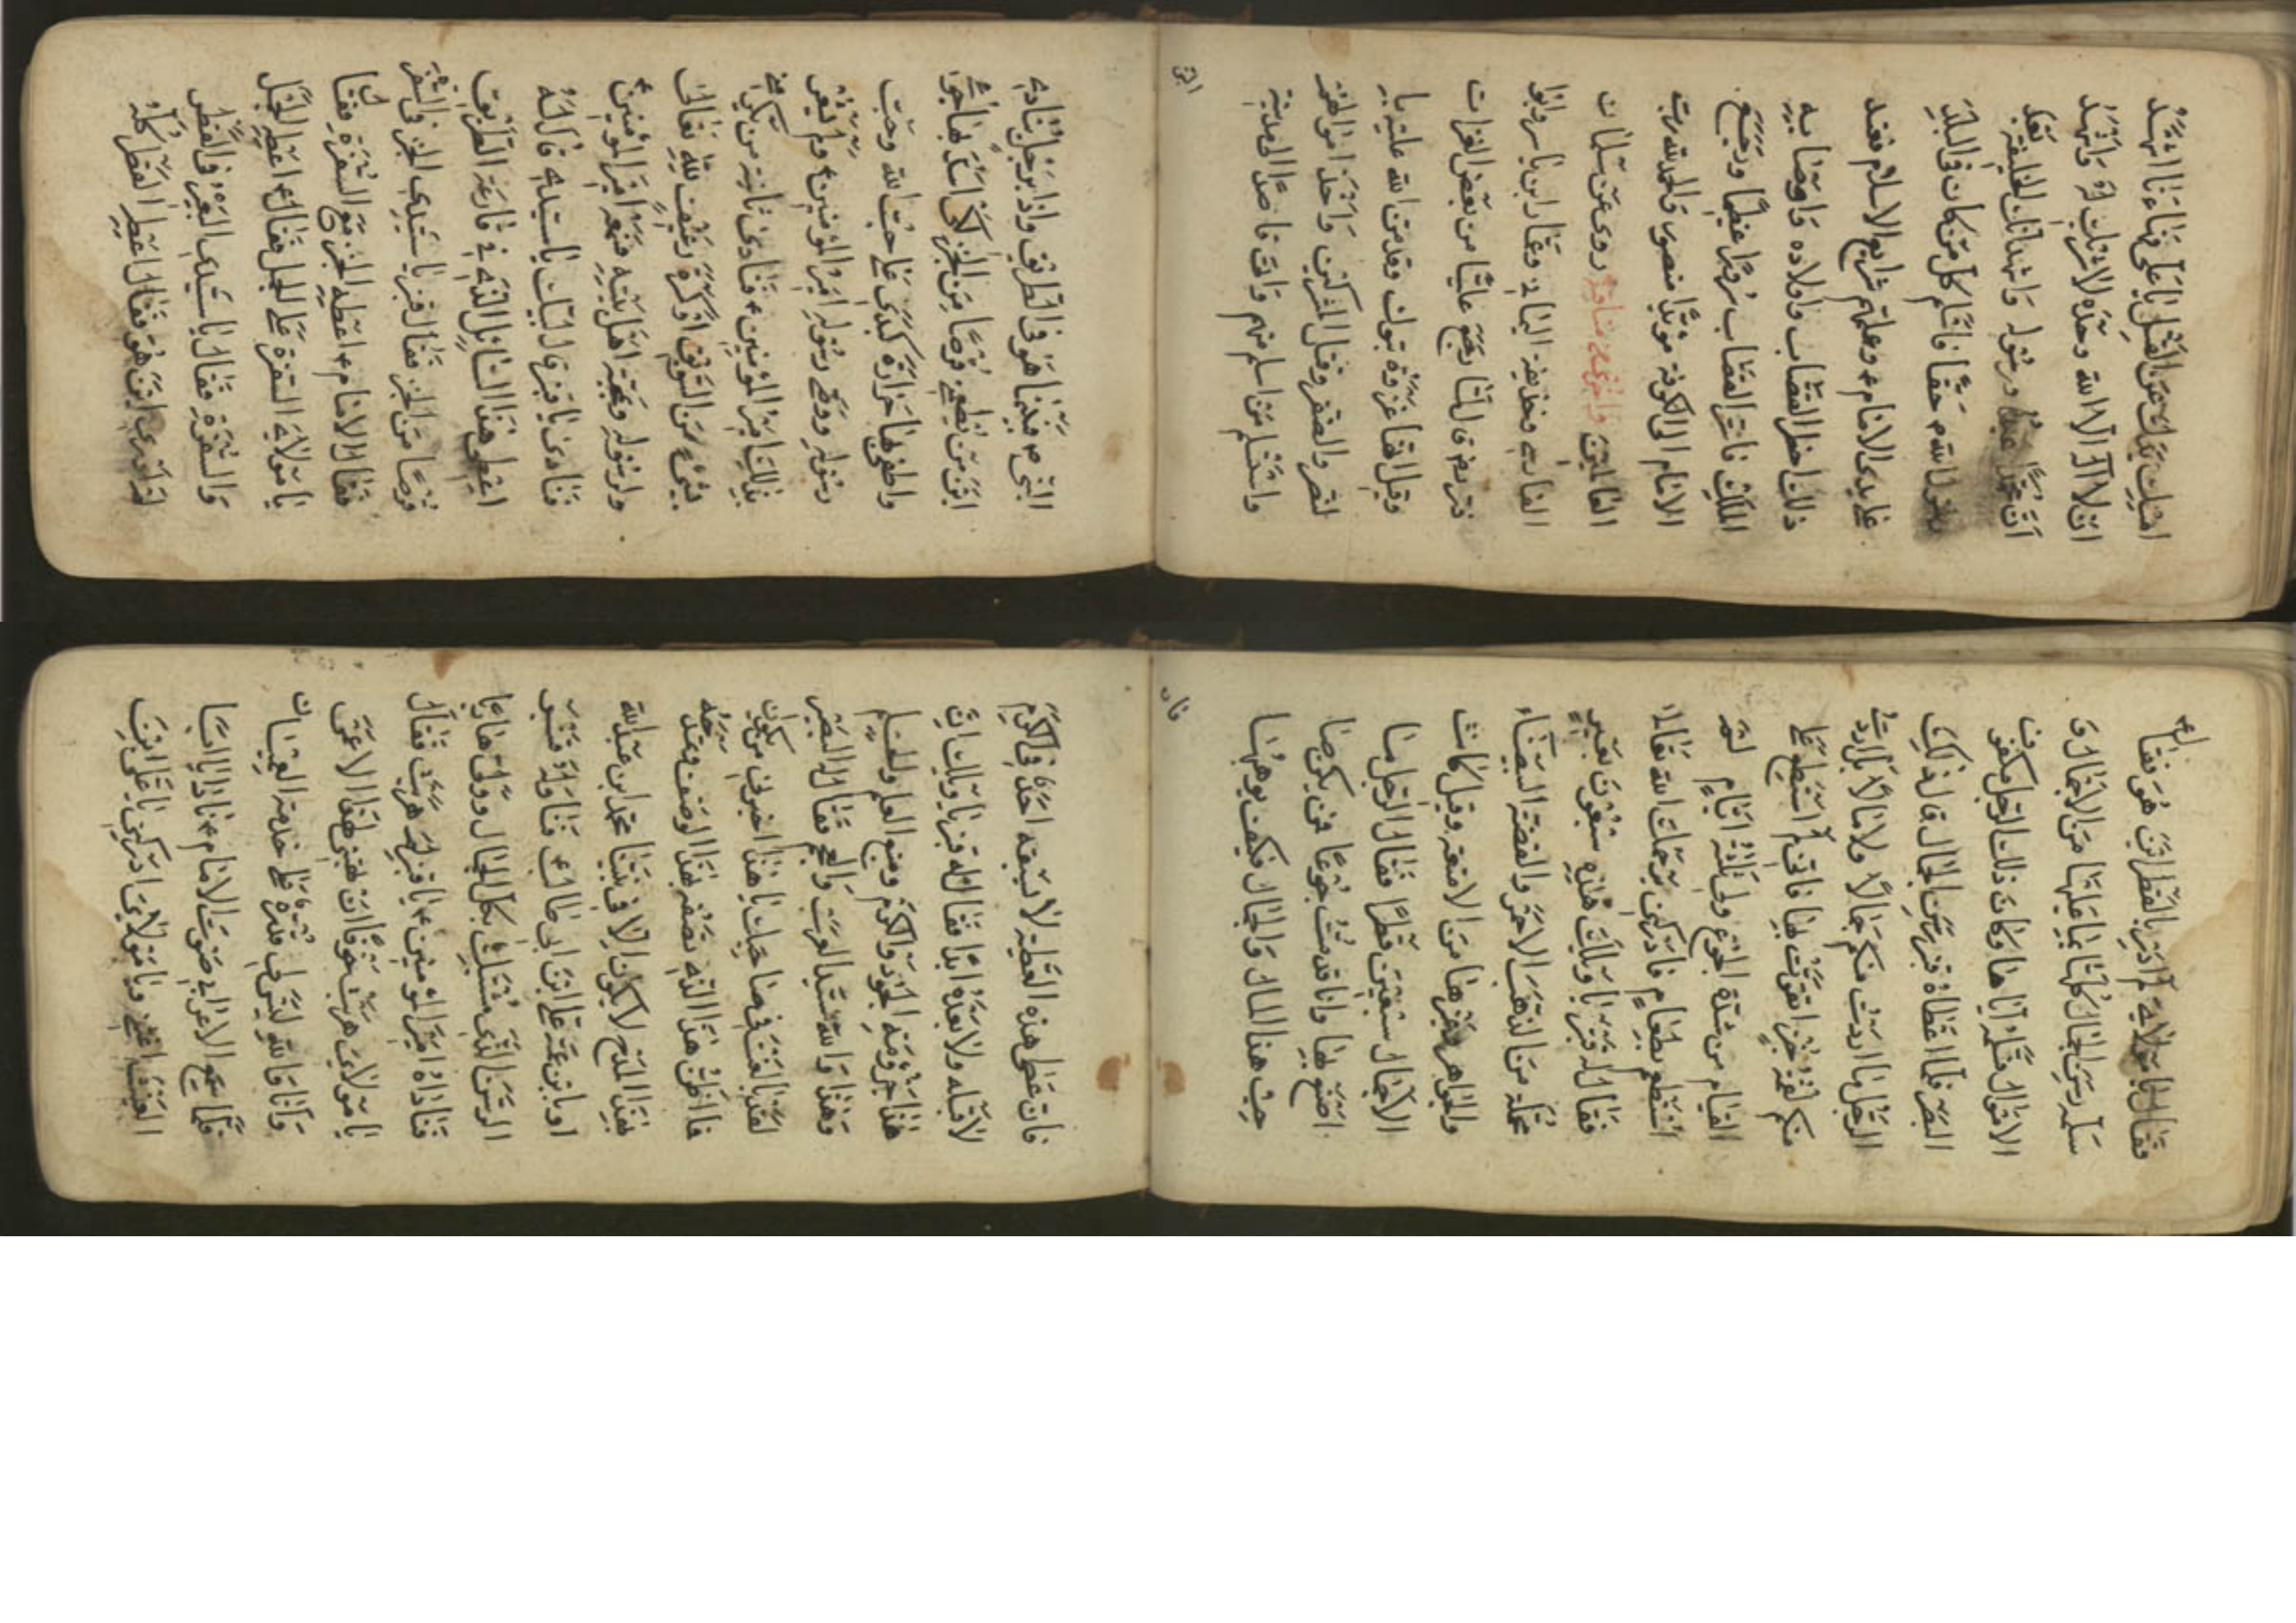 عن امثل يا علي فقال انا اشهد
ان لا اله الا الله وحده لا شريك له واشهد
ان محمدا عبده ورسوله واشهد انك الخليفة بعد
رسول الله ص حقا فاسلم كل من كان في البلد
على يدي الامام ع وعلمهم شرايع الاسلام فعند
ذلك احضر القصاب واولاده واوصا به
الملك فاسر القصاب سرورا عظيما ورجع
الامام الى الكوفة مؤيدا منصورا والحمد لله رب
العالمين روى عن سلمان
الفارسي وحذيفة اليماني وعمار ابن ياسر قالوا
رجع عليا من بعض الغزات
وقيل انها غزوة تبوك وقد من الله عليه با
لنصر والظفر وقتل المشركين واخذ اموالهم
واستسلم من اسلم منهم وانه قاصدا الى المدينة
النبي
النبي ص فبينما هو في الطريق واذا برجل ينادي
اين من يطعمني قرصا من الخبز لكي اسد بها جوعي
واطفي بها حرارة كبدي على حب الله وحب
رسوله ووصي رسوله امير المؤمنين ع ولم يعلم
بذلك امير المؤمنين ع فنادى ثانية من يكرمني
بشيء من السويق او كسرة رغيف لله تعالى
ولرسوله ومحبة اهل بيته فسمعه امير المؤمنين ع
فنادى يا قنبر قال لبيك يا سيدي قال له
اعط هذا السائل الذي في قارعة الطريق
قرصا من الخبز فقال قنبر يا سيدي الخبز في السفرة
فقال الامام ع اعطه الخبز مع السفرة فقال
يا مولاي السفرة على الجمل فقال ع اعطه الجمل
والسفرة فقال يا سيدي البعير في القطار
لم ادري اين هو فقال اعطه القطار كله
فقال يا مولاي لم ادر بالقطار اين هو فقال ع
سلمه رسن الجمال كلها بما عليها من الاحمال و
الاموال فسلمه اياها وكان ذلك الرجل مكفوف
البصر فلما اعطاه قنبر رسن الجمال قال ذلك
الرجل ما اردت منكم جمالا ولا مالا بل اردت
منكم لقمة خبز اتقوت بها فاني لم استطع على
القيام من شدة الجوع ولي ثلثة ايام لم
استطعم بطعام فادركني يرحمك الله تعالى
فقال له قنبر يا ويلك هذه سبعون بعير
محملة من الذهب الاحمر والفضة البيضاء
والجواهر وغيرها من الامتعة وقيل كانت
الاجمال سبعين قطارا فقال الرجل ما
اصنع بها وانا قد مت جوعا فمن يكن صا
حب هذا المال والجمال فكيف يوهبها
فان
فان عطى هذه العطية لا سبقه احد في الكرم
لا قبله ولا بعده ابدا فقال له قنبر يا ويلك ان
هذا جرثومة الجود والكرم ومنبع العلم والحلم
وهذا والله سيد العرب والعجم فقال له البصير
لقد بالغت في يا هذا اخبرني من يكون
فما اظن هذا الذي تصفه بهذا الوصف وتمدحه
بهذا المدح لا يكون الا نبينا محمد ابن عبد الله
او ابن عمه علي ابن ابي طالب ع فتناوله قنبر
الرسن الذي مشتبك بكل الجمال وولى هاربا
فناداه امير المؤمنين ع يا قنبر لم هربت فقال
يا مولاي هربت خوفا ان تهبني لهذا الاعمى
وانا والله ليس لي قدرة على خدمة العميان
فلما سمع الاعرابي صوت الامام ع نادى يا ابا
اغثني ويا مولاي ادركني يا علي انت